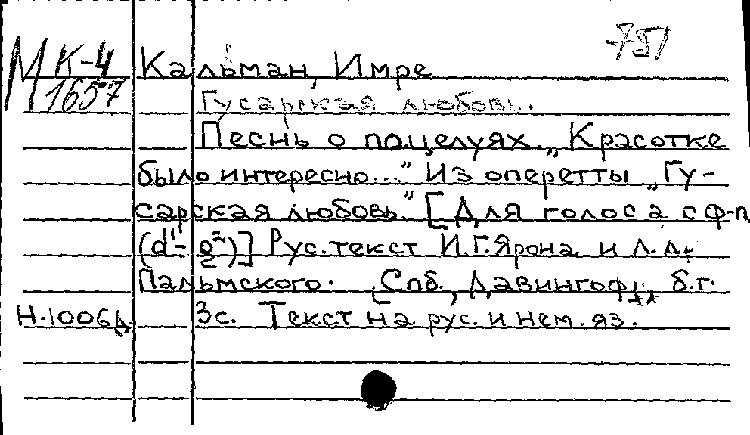 751
М К-4 Кальман, Имре
1657 Гусарская любовь.
Песнь о поцелуях. „Красотке
было интересно...” Из оперетты „Гу-
сарская любовь.” [Для голоса с ф-п
(d¹-g²)] Рус. текст И.Г.Ярона и Л.Л.
Пальмского. Спб., Давингоф, б.г.
Н.10061 3с. Текст на рус. и нем. яз.